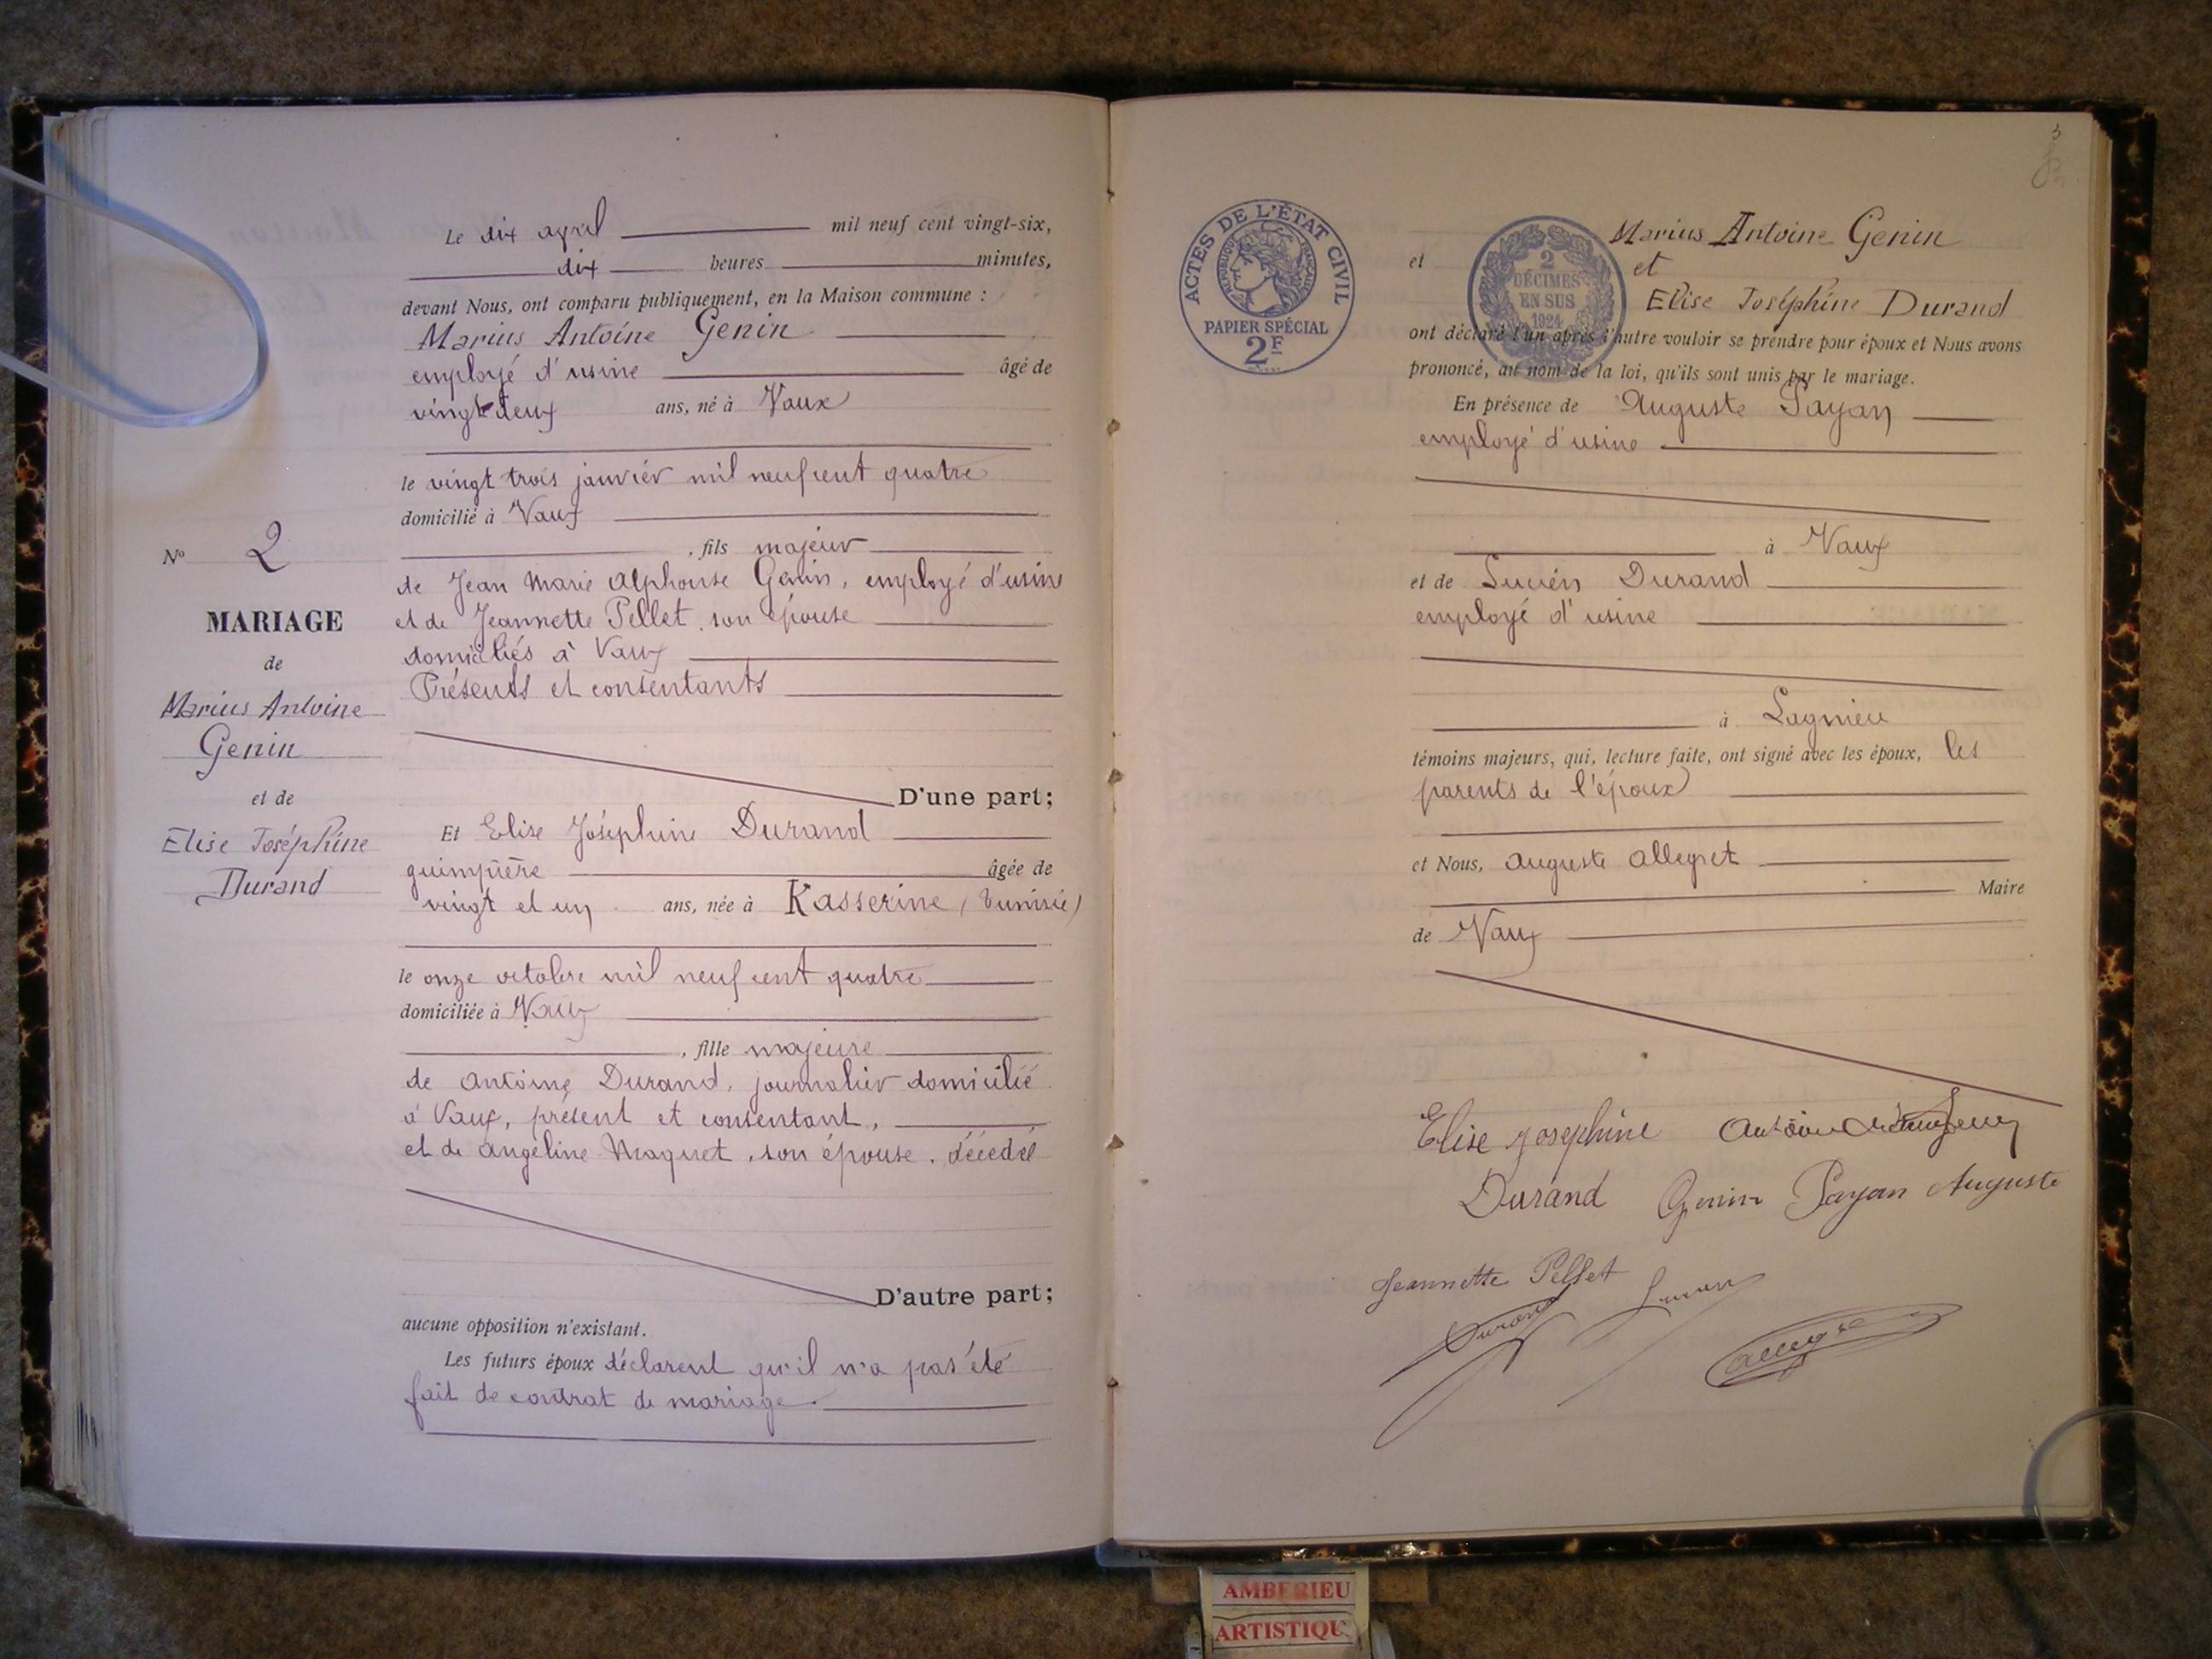 Le dix avril mil neuf cent vingt-six,
dix heures minutes,
devant Nous, ont comparu publiquement, en la Maison commune :
Marius Antoine Genin
employé d'usine âgé de
vingt deux ans, né à Vaux
le vingt trois janvier mil neuf cent quatre
domicilié à Vaux
, fils majeur
de Jean Marie Alphonse Genin, employé d'usine
et de Jeannette Pellet, son épouse
domiciliés à Vaux
Présents et consentants
D'une part;
N° 2
MARIAGE
de
Marius Antoine
Genin
et de
Elise Joséphine
Durand
Et Elise Joséphine Durand
guimpière âgée de
vingt et un ans, née à Kasserine (Tunisie)
le onze octobre mil neuf cent quatre
domiciliée à Vaux
, fille majeure
de Antoine Durand, journalier domicilié
à Vaux, présent et consentant,
et de Angéline Maquet, son épouse, décédée
D'autre part;
aucune opposition n'existant.
Les futurs époux déclarent qu'il n'a pas été
fait de contrat de mariage.
3
ACTES DE L'ÉTAT CIVIL
RÉPUBLIQUE FRANÇAISE
PAPIER SPÉCIAL
2F
2
DÉCIMES
EN SUS
1924
Marius Antoine Genin
et et
Elise Joséphine Durand
ont déclaré l'un après l'autre vouloir se prendre pour époux et Nous avons
prononcé, au nom de la loi, qu'ils sont unis par le mariage.
En présence de Auguste Payan
employé d'usine
à Vaux
et de Lucien Durand
employé d'usine
à Lagnieu
témoins majeurs, qui, lecture faite, ont signé avec les époux, les
parents de l'époux
et Nous, Auguste Allegret
Maire
de Vaux
Elise Josephine Antoine
Durand Genin Payan Auguste
Jeannette Pellet
Durand Lucien
AMBERIEU
ARTISTIQU